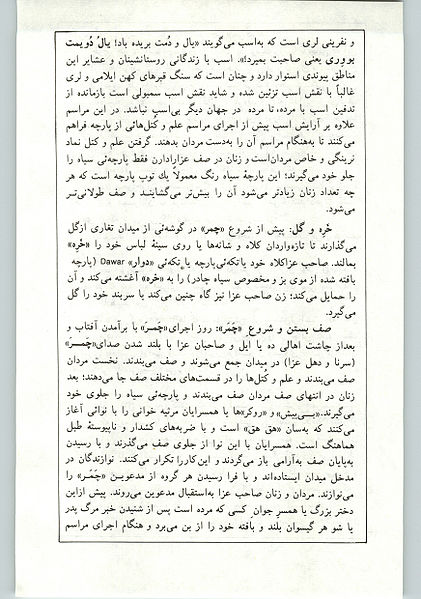 و نفرینی لری است که به‌اسب می‌گویند «یال و دُمت بریده باد! یالْ دُویمت
بووری یعنی صاحبت بمیرد!». اسب با زندگانی روستانشینان و عشایر این
مناطق پیوندی استوار دارد و چنان است که سنگ قبرهای کهن ایلامی و لری
غالباً با نقش اسب تزئین شده و شاید نقش اسب سمبولی است بازمانده از
تدفین اسب با مرده، تا مرده در جهان دیگر بی‌اسب نباشد. در این مراسم
علاوه بر آرایش اسب پیش از اجرای مراسم علم و کُتل‌هائی از پارچه فراهم
می‌کنند تا به‌هنگام مراسم آن را به‌دست مردان بدهند. گرفتن علم و کتل نماد
نرینگی و خاص مردان‌است و زنان در صف عزادارن فقط پارچه‌ئی سیاه را
جلو خود می‌گیرند؛ این پارچهٔ سیاه رنگ معمولاً یك توپ پارچه است که هر
چه تعداد زنان زیادتر می‌شود آن را بیش‌تر می‌گشاینـد و صف طولانی‌تـر
می‌شود.
خَرِه و گل: پیش از شروع «چمر» در گوشه‌ئی از میدان تغاری ازگل
می‌گذارند تا تازه‌واردان کلاه و شانه‌ها یا روی سینهٔ لباس خود را «خَرِه»
بمالند. صاحب عزاکلاه خود یاتکه‌ئی‌پارچه یا تکه‌ئی «دوار» Dawar (پارچه
بافته شده از موی بز و مخصوص سیاه چادر) را به «خره» آغشته می‌کند و آن
را حمایل می‌کند؛ زن صاحب عزا نیز گاه چنین می‌کند یا سربند خود را گل
می‌گیرد.
صف بستن و شروع «چَمَر»: روز اجرای«چَمـَر» با برآمدن آفتاب و
بعداز چاشت اهالی ده یا ایل و صاحبان عزا با بلند شدن صدای«چَمـَر»
(سرنا و دهل عزا) در میدان جمع می‌شوند و صف می‌بندند. نخست مردان
صف می‌بندند و علم و کُتل‌ها را در قسمت‌های مختلف صف جا می‌دهند؛ بعد
زنان در انتهای صف مردان صف می‌بندند و پارچه‌ئی سیاه را جلوی خود
می‌گیرند. و «روکر»ها یا همسرایان مرثیه خوانی را با نوائی آغاز
می‌کنند که به‌سان «هق هق» است و با ضربه‌های کشدار و ناپیوستهٔ طبل
هماهنگ است. همسرایان با این نوا از جلوی صف می‌گذرند و با رسیدن
به‌پایان صف به‌آرامی باز می‌گردند و این‌کاررا تکرار می‌کنند. نوازندگان در
مدخل میدان ایستاده‌اند و با فرا رسیدن هر گروه از مدعویـن «چَمَـر» را
می‌نوازند. مردان و زنان صاحب عزا به‌استقبال مدعوین می‌روند. پیش ازاین
دختر بزرگ یا همسرِ جوان کسی که مرده است پس از شنیدن خبر مرگ پدر
یا شو هر گیسوان بلند و بافته خود را از بن می‌برد و هنگام اجرای مراسم